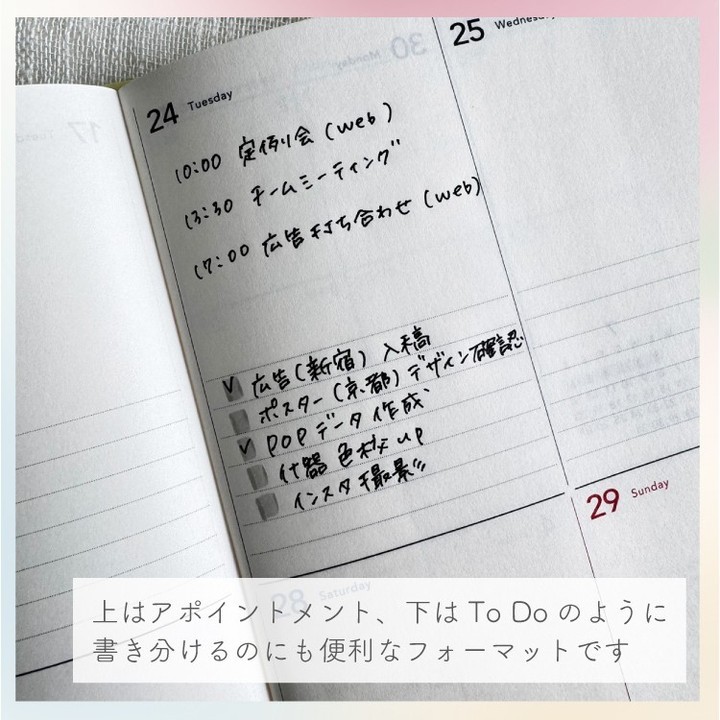 17 Tuesday
30 Monday
24 Tuesday
10:00 定例会(web)
13:30 チームミーティング
17:00 広告打ち合わせ(web)
広告(新宿)入稿
ポスター(京都)デザイン確認
POPデータ作成
什器 色校up
インスタ撮影
25 Wednesday
28 Saturday
29 Sunday
上はアポイントメント、下は To Do のように
書き分けるのにも便利なフォーマットです